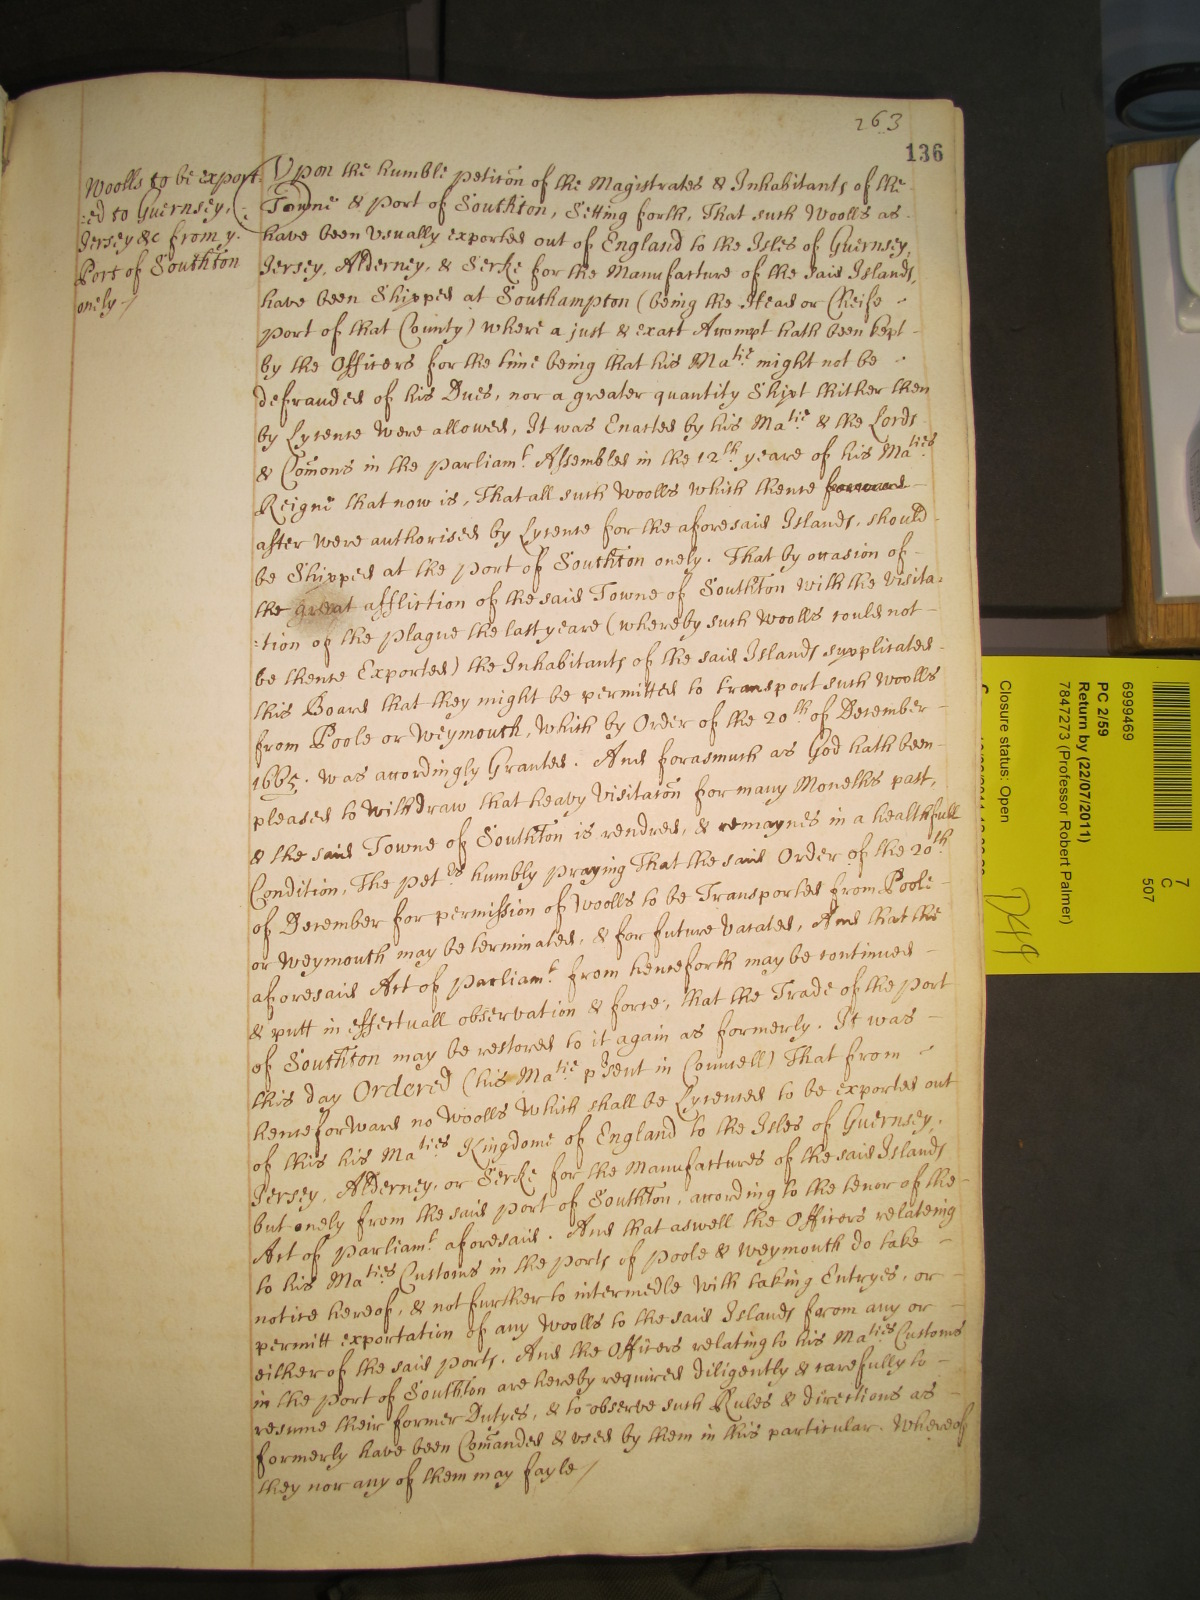 263
136
Woolls to be export-
:ed to Guernsey,
Jersey &c from y.
Port of Southton
onely
Upon the humble petiton of the Magistrates & Inhabitants of the
Towne & port of Southton, Setting forth, That such Woolls as
have been usually exported out of England to the Isles of Guernsey,
Jersey, Alderney, & Serke for the Manufacture of the said Islands,
have been Shipped at Southampton (being the Head or Cheife
port of that County) where a just & exact Accompt hath been kept
by the Officers for the time being that his Matie might not be
defrauded of his Dues, nor a greater quantity Shipt thither then
by Lycence were allowed, It was Enacted by his Matie & the Lords
& Comons in the parliamt. Assembled in the 12th yeare of his Maties
Reigne that now is, That all such Woolls which thence
after were authorised by Lycence for the aforesaid Islands, should
be Shipped at the port of Southton onely. That by occasion of
the great affliction of the said Towne of Southton with the visita-
:tion of the plague the last yeare (whereby such Woolls could not
be thence Exported) the Inhabitants of the said Islands supplicated
this Board that they might be permitted to transport such Woolls
from Poole or Weymouth, which by Order of the 20th of December
1665. was accordingly Granted. And forasmuch as God hath been
pleased to withdraw that heavy visitaton for many Moneths past,
& the said Towne of Southton is rendred, & remaynes in a healthfull
Condition, The petrs humbly praying That the said Order of the 20th
of December for permission of Woolls to be Transported from Poole
or Weymouth may be terminated, & for future vacated, And that the
aforesaid Act of parliamt. from henceforth may be continued
& putt in effectuall observation & force, that the Trade of the port
of Southton may be restored to it again as formerly. It was
this day Ordered (his Matie psent in Councell) That from
henceforward no Woolls which shall be Lycenced to be exported out
of this his Maties Kingdome of England to the Isles of Guernsey,
Jersey, Alderney, or Serke for the Manufactures of the said Islands
but onely from the said port of Southton, according to the tenor of the
Act of parliamt. aforesaid. And that aswell the Officers relateing
to his Maties Customs in the ports of poole & Weymouth do take
notice hereof, & not further to intermedle with taking Entryes, or
permitt exportation of any Woolls to the said Islands from any or
either of the said ports. And the Officers relating to his Maties Customs
in the port of Southton are hereby required diligently & carefully to
resume their former Dutyes, & to observe such Rules & directions as
formerly have been Comanded & used by them in this particular. Whereof
they nor any of them may fayle
7
C
507
6999469
PC 2/59
Return by (22/07/2011)
7847273 (Professor Robert Palmer)
Closure status: Open